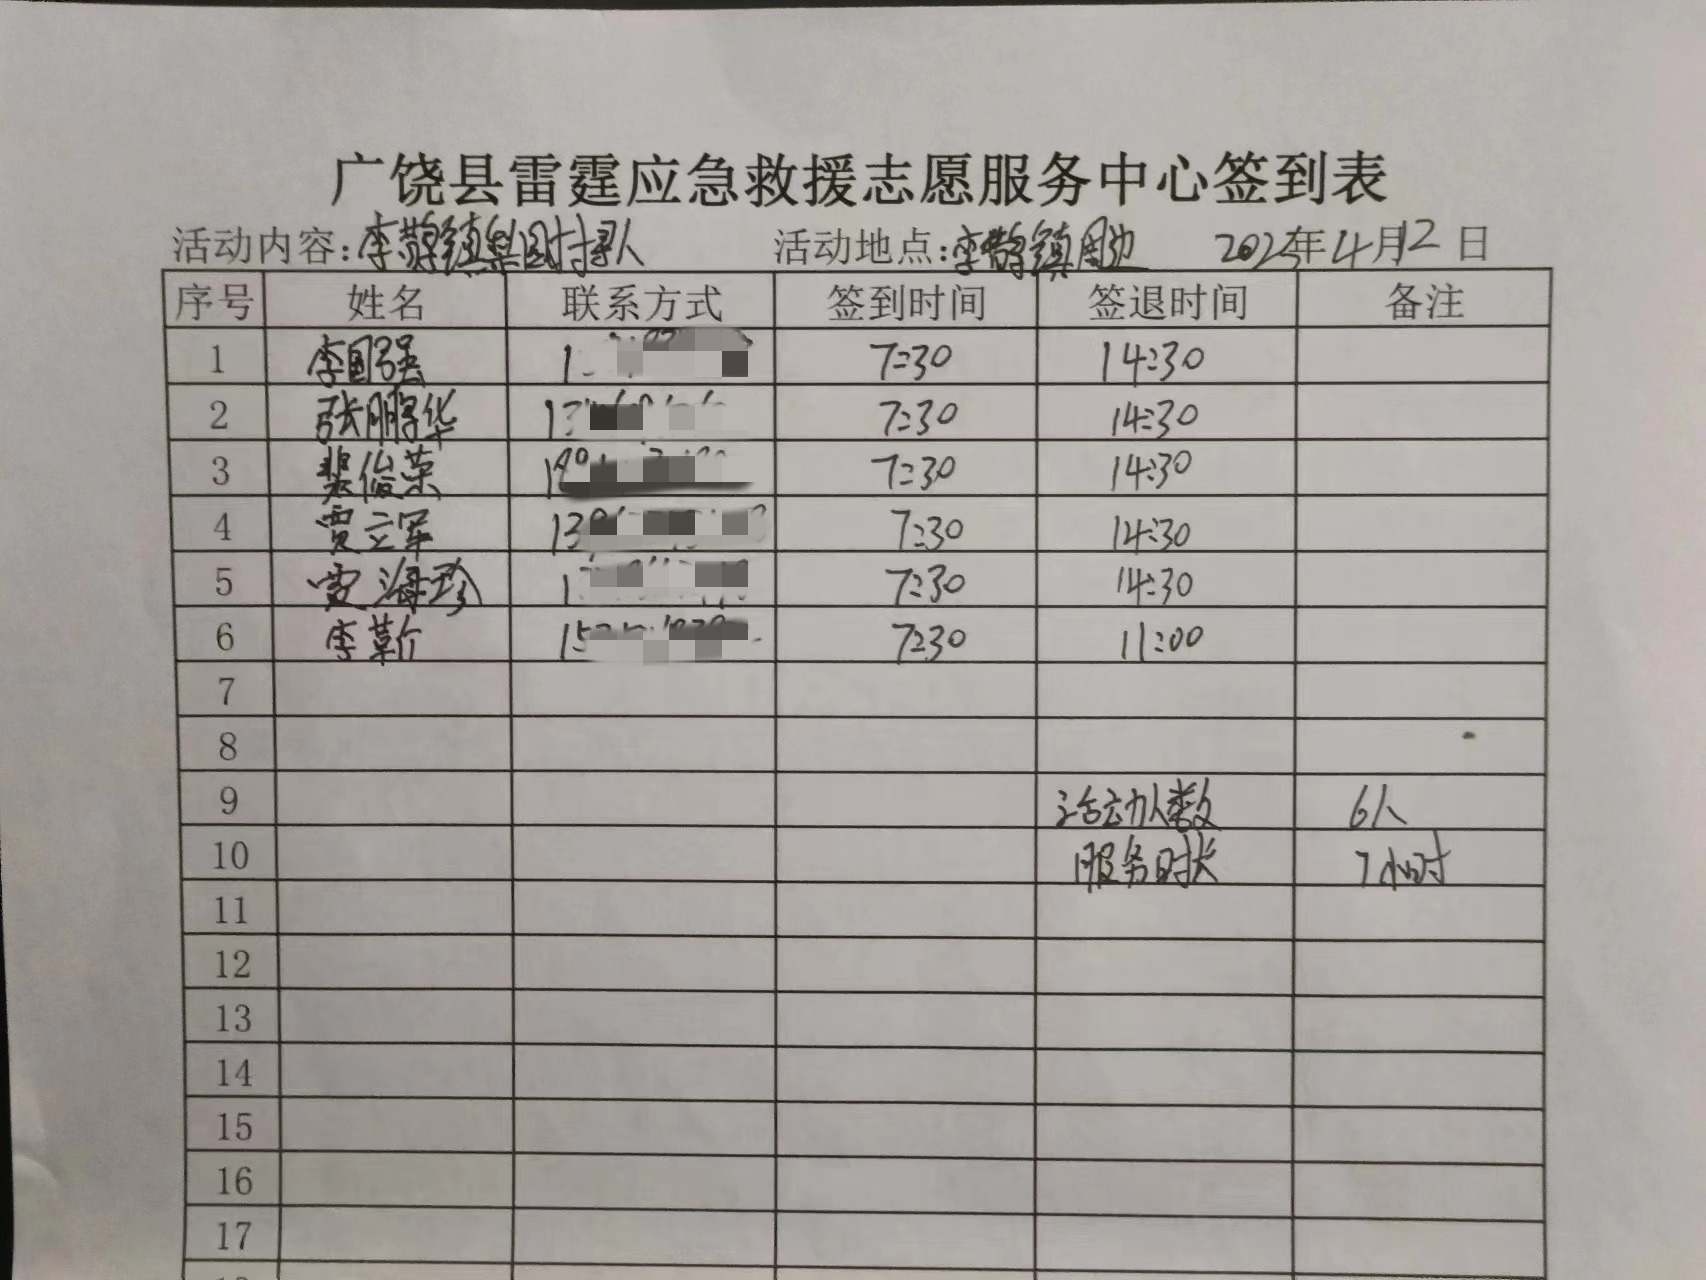 广饶县雷霆应急救援志愿服务中心签到表
活动内容:李鹊镇 搜寻人 活动地点:李鹊镇周边 2025年4月12日
序号 姓名 联系方式 签到时间 签退时间 备注
1 李国强 1 7:30 14:30
2 张鹏华 13 7:30 14:30
3 裴俊荣 7:30 14:30
4 贾立军 13 7:30 14:30
5 海珍 1 7:30 14:30
6 李 15 7:30 11:00
7
8
9 活动人数 6人
10 服务时长 7小时
11
12
13
14
15
16
17